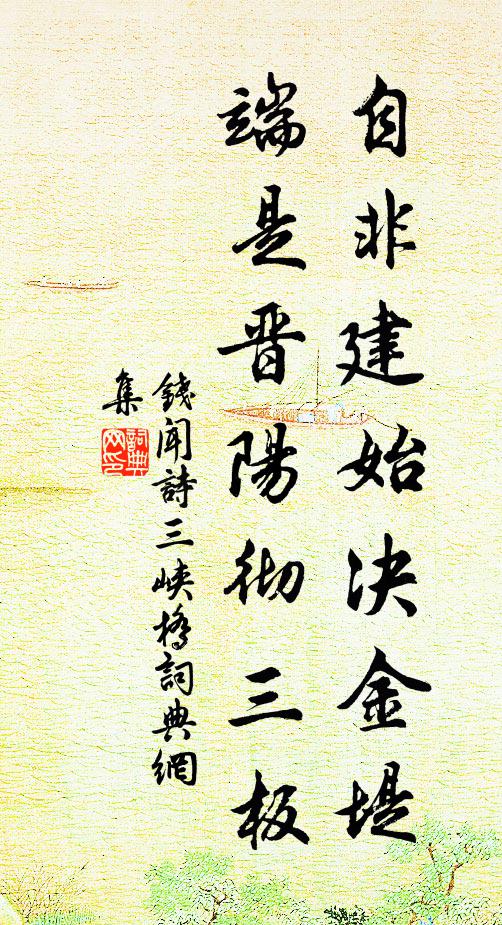 自非建始決金堤
端是晋陽彻三板
錢聞詩三峽橋詞典網
集
詞典
网印